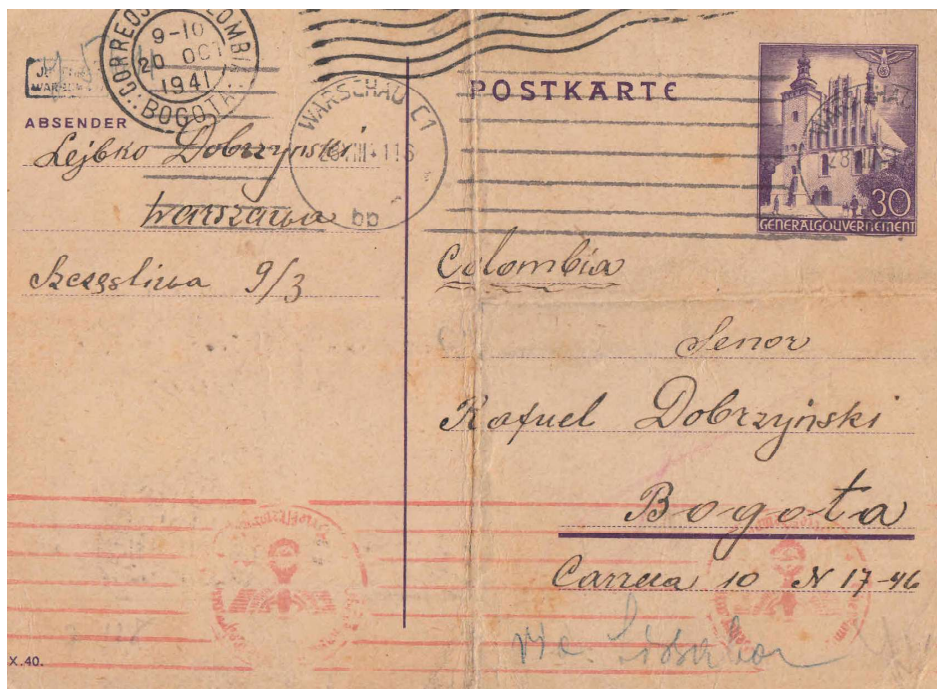 CORREOS COLOMBIA
9-10
20 OCT
1941
BOGOTA
WARSCHAU C1
bp
POSTKARTE
30
GENERALGOUVERNEMENT
ABSENDER
Lejbko Dobrzynski
Warszawa
Szczęsliwa 9/3
Colombia
Senor
Rafuel Dobrzyński
Bogota
Carreca 10 N 17-46
X.40.